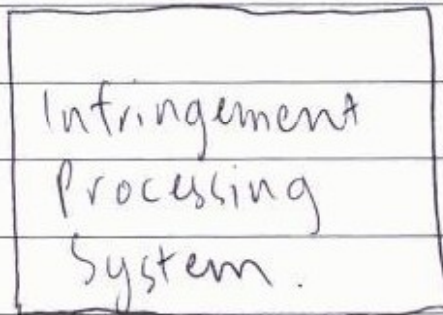 Infringement
Processing
System.